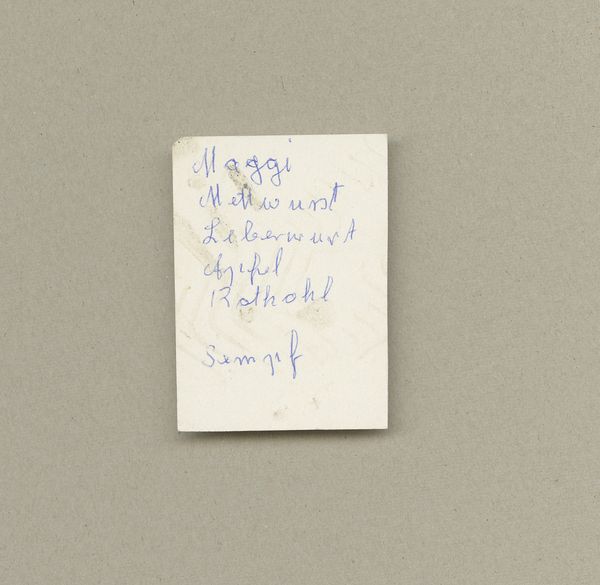 Maggi
Mettwurst
Leberwurst
Apfel
Rotkohl
Sempf